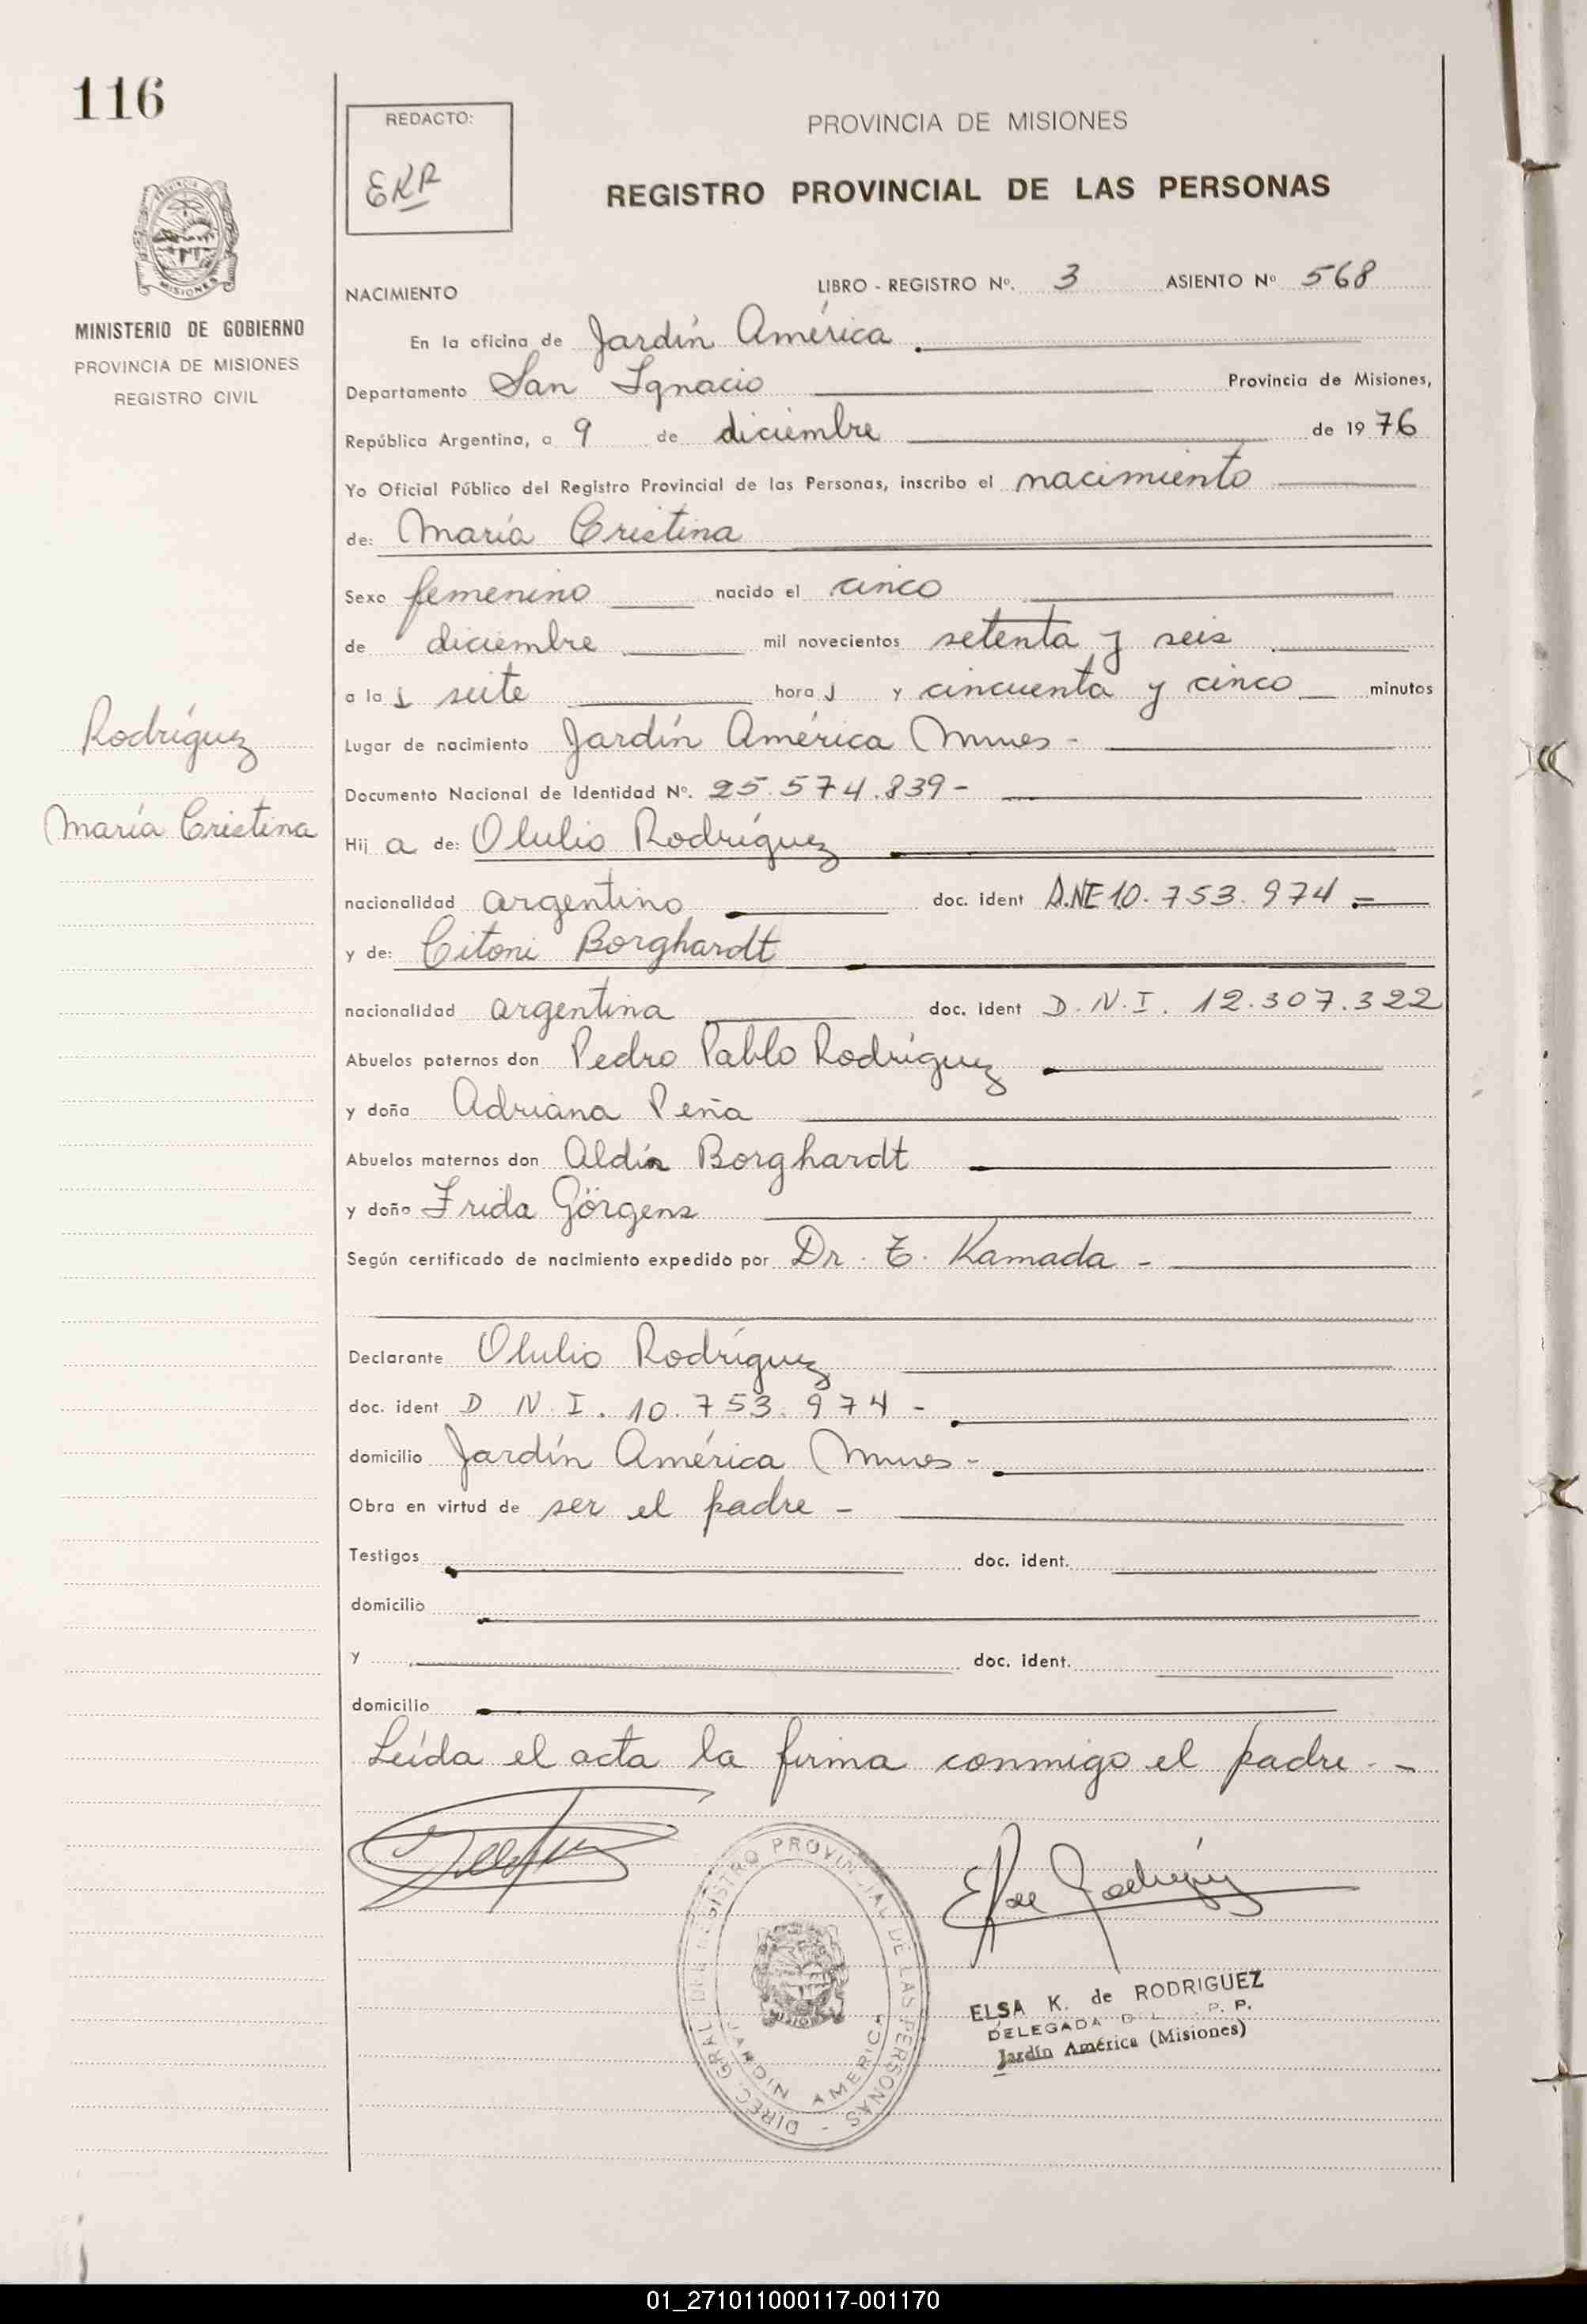 116
REDACTO:
EKR
PROVINCIA DE MISIONES
REGISTRO PROVINCIAL DE LAS PERSONAS
MISIONES
MINISTERIO DE GOBIERNO
PROVINCIA DE MISIONES
REGISTRO CIVIL
NACIMIENTO LIBRO - REGISTRO Nº. 3 ASIENTO Nº 568
En la oficina de Jardín América
Departamento San Ignacio Provincia de Misiones,
República Argentina, a 9 de diciembre de 1976
Yo Oficial Público del Registro Provincial de las Personas, inscribo el nacimiento
de: María Cristina
Sexo femenino nacido el cinco
de diciembre mil novecientos setenta y seis
a las siete horas y cincuenta y cinco minutos
Rodríguez
María Cristina
Lugar de nacimiento Jardín América Mnes-
Documento Nacional de Identidad Nº. 25.574.839-
Hija de: Olulio Rodríguez
nacionalidad argentino doc. ident D.N.I 10.753.974
y de: Citoni Borghardt
nacionalidad argentina doc. ident D.N.I. 12.307.322
Abuelos paternos don Pedro Pablo Rodríguez
y doña Adriana Peña
Abuelos maternos don Aldin Borghardt
y doña Frida Görgens
Según certificado de nacimiento expedido por Dr. T. Kamada -
Declarante Olulio Rodríguez
doc. ident D N.I. 10.753.974 -
domicilio Jardín América Mnes-
Obra en virtud de ser el padre -
Testigos doc. ident.
domicilio
y doc. ident.
domicilio
Leída el acta la firma conmigo el padre.-
DIREC. GRAL. DEL REGISTRO PROVINCIAL DE LAS PERSONAS -
AMERICA
ELSA K. de RODRIGUEZ
DELEGADA D L P. P.
Jardín América (Misiones)
01_271011000117-001170